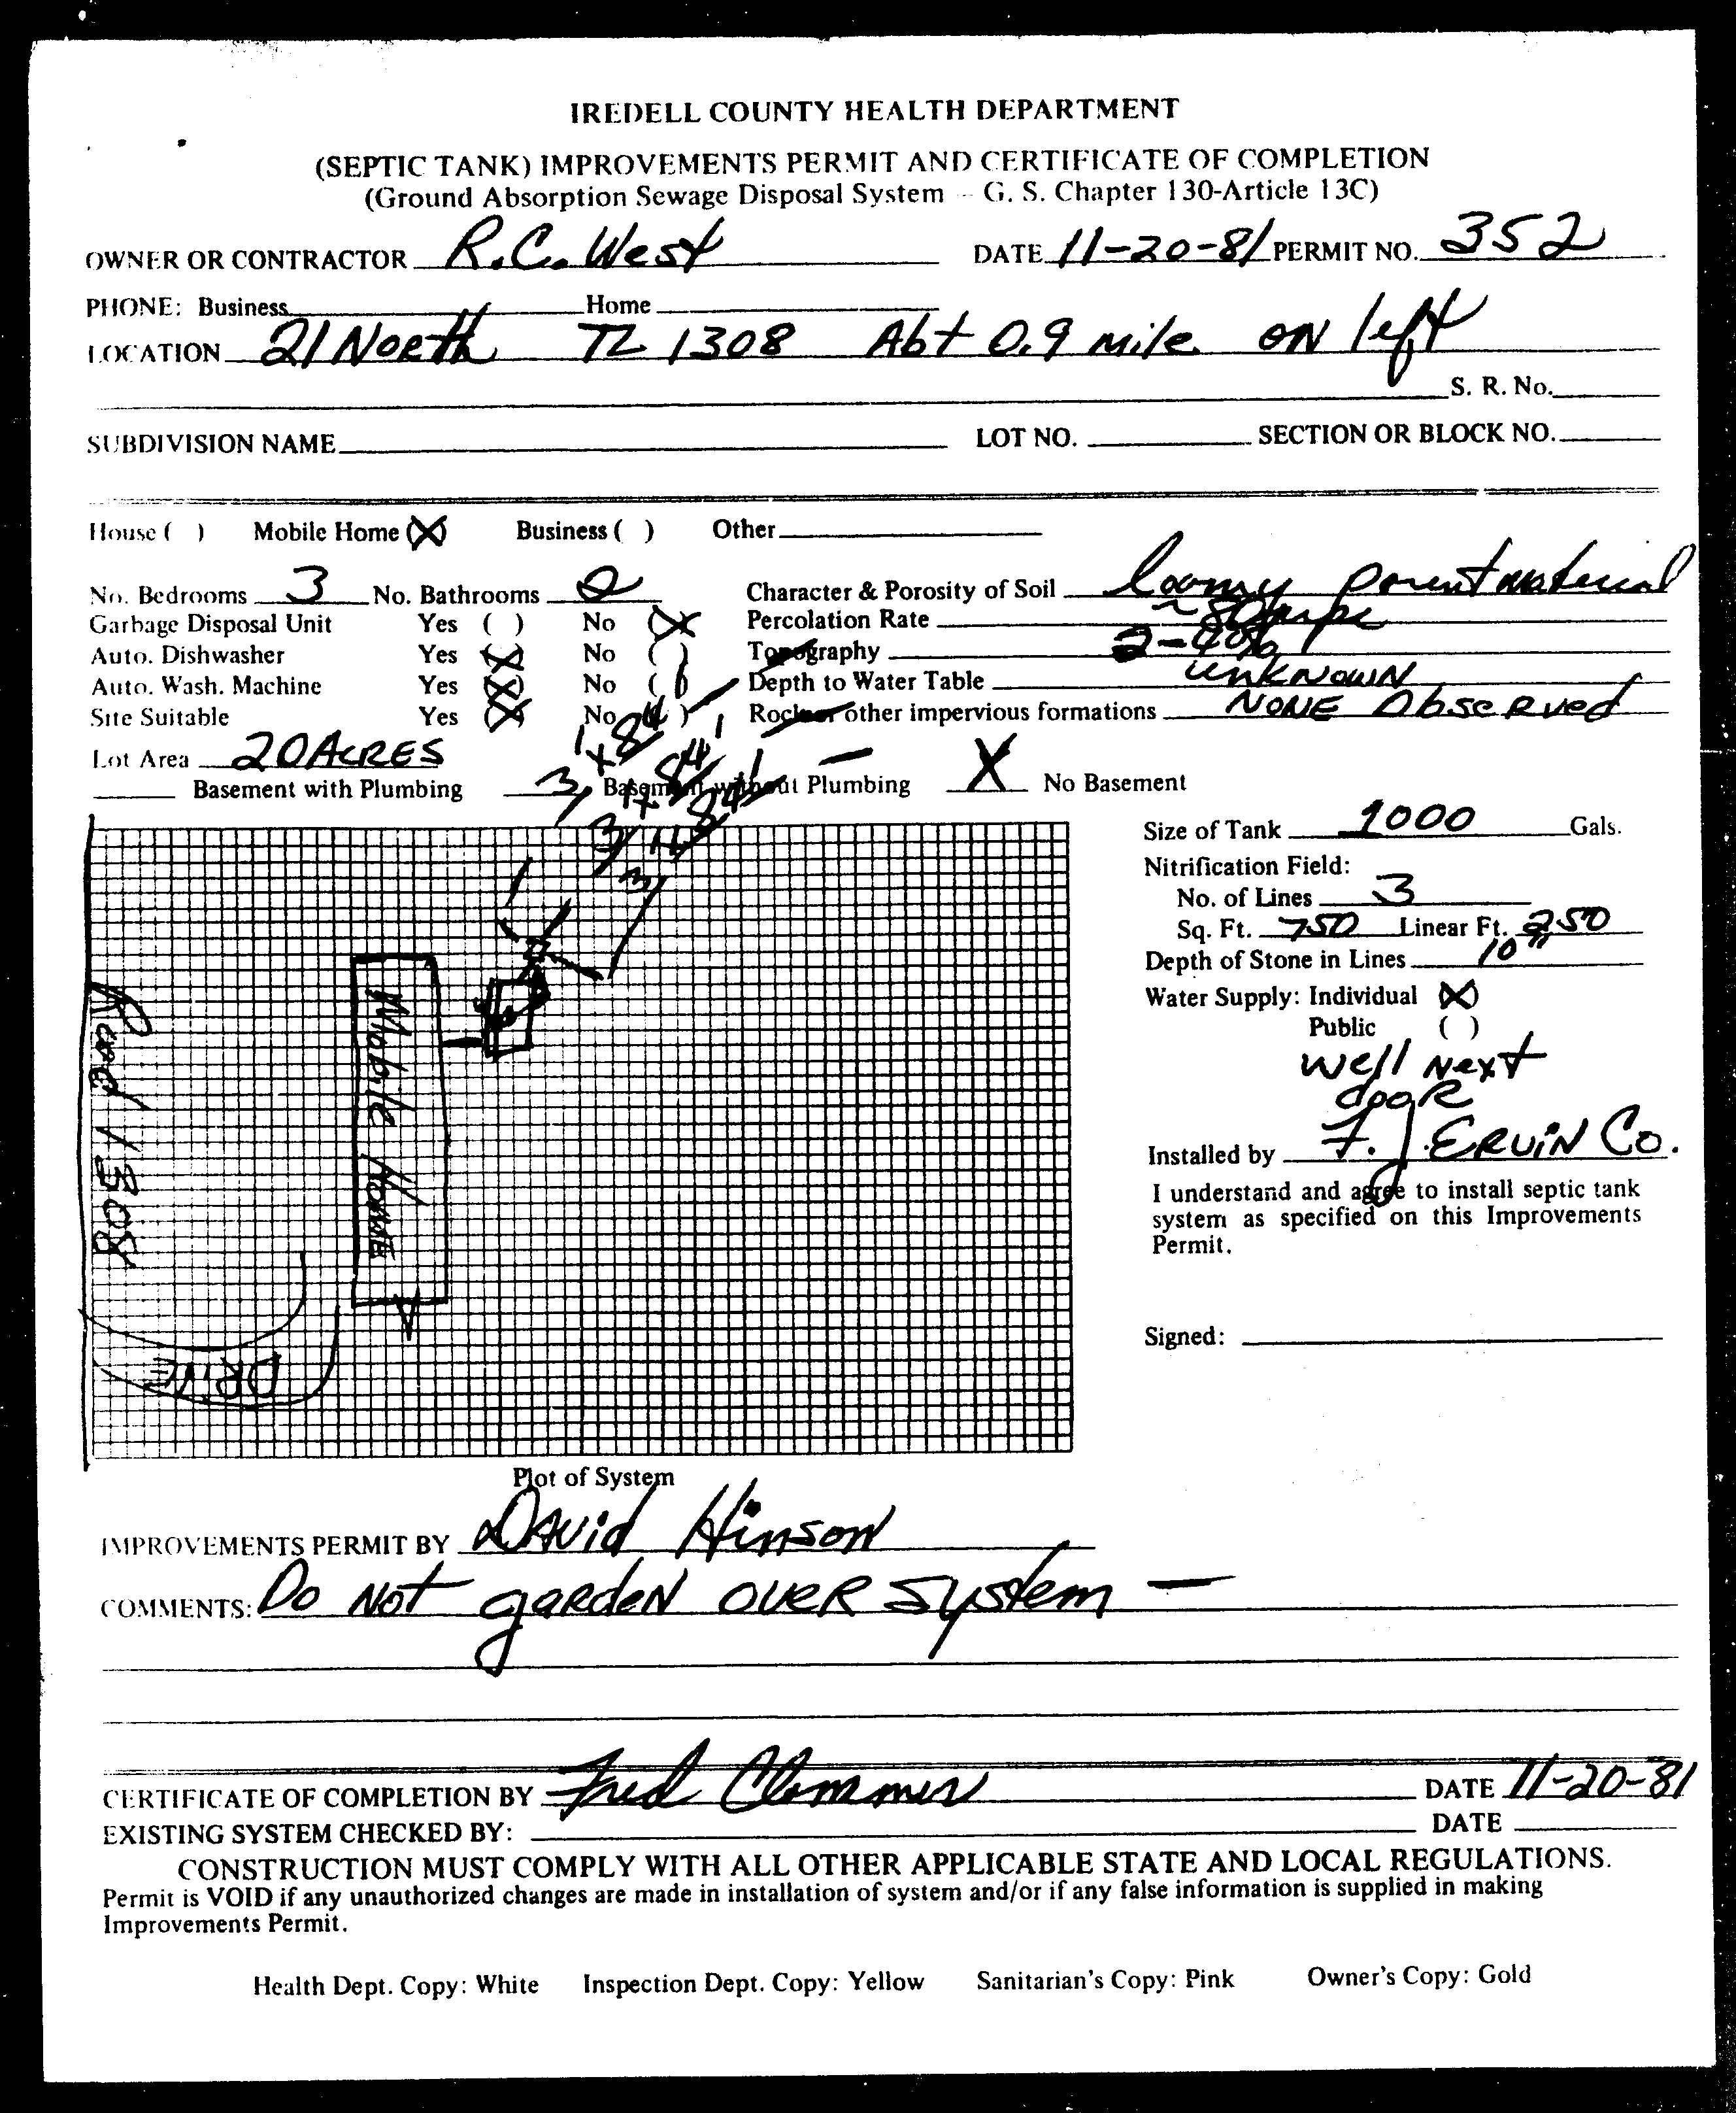 IREDELL COUNTY HEALTH DEPARTMENT
(SEPTIC TANK) IMPROVEMENTS PERMIT AND CERTIFICATE OF COMPLETION
(Ground Absorption Sewage Disposal System – G. S. Chapter 130-Article 13C)
OWNER OR CONTRACTOR R.C. West DATE 11-20-81 PERMIT NO. 352
PHONE: Business Home
LOCATION 21 North TL 1308 Abt 0.9 mile ON left
S. R. No.
SUBDIVISION NAME LOT NO. SECTION OR BLOCK NO.
House ( ) Mobile Home (X) Business ( ) Other
No. Bedrooms 3 No. Bathrooms 2 Character & Porosity of Soil loamy parent material
Garbage Disposal Unit Yes ( ) No (X) Percolation Rate ~80
Auto. Dishwasher Yes (X) No ( ) Topography 2-40%
Auto. Wash. Machine Yes (X) No ( ) Depth to Water Table unknown
Site Suitable Yes (X) No ( ) Rock or other impervious formations NONE Observed
Lot Area 20 ACRES
Basement with Plumbing Basement without Plumbing X No Basement
3' x 84'
3' x 84'
3' x 84'
Size of Tank 1000 Gals.
Nitrification Field:
No. of Lines 3
Sq. Ft. 750 Linear Ft. 250
Depth of Stone in Lines 10"
Water Supply: Individual (X)
Public ( )
Well Next
dooR
Installed by F. J. ERVIN Co.
I understand and agree to install septic tank
system as specified on this Improvements
Permit.
Signed:
Road 1308
Mobile Home
DRIVE
Plot of System
IMPROVEMENTS PERMIT BY David Hinson
COMMENTS: Do Not garden over system –
CERTIFICATE OF COMPLETION BY Fred Clemmer DATE 11-20-81
EXISTING SYSTEM CHECKED BY: DATE
CONSTRUCTION MUST COMPLY WITH ALL OTHER APPLICABLE STATE AND LOCAL REGULATIONS.
Permit is VOID if any unauthorized changes are made in installation of system and/or if any false information is supplied in making
Improvements Permit.
Health Dept. Copy: White Inspection Dept. Copy: Yellow Sanitarian's Copy: Pink Owner's Copy: Gold